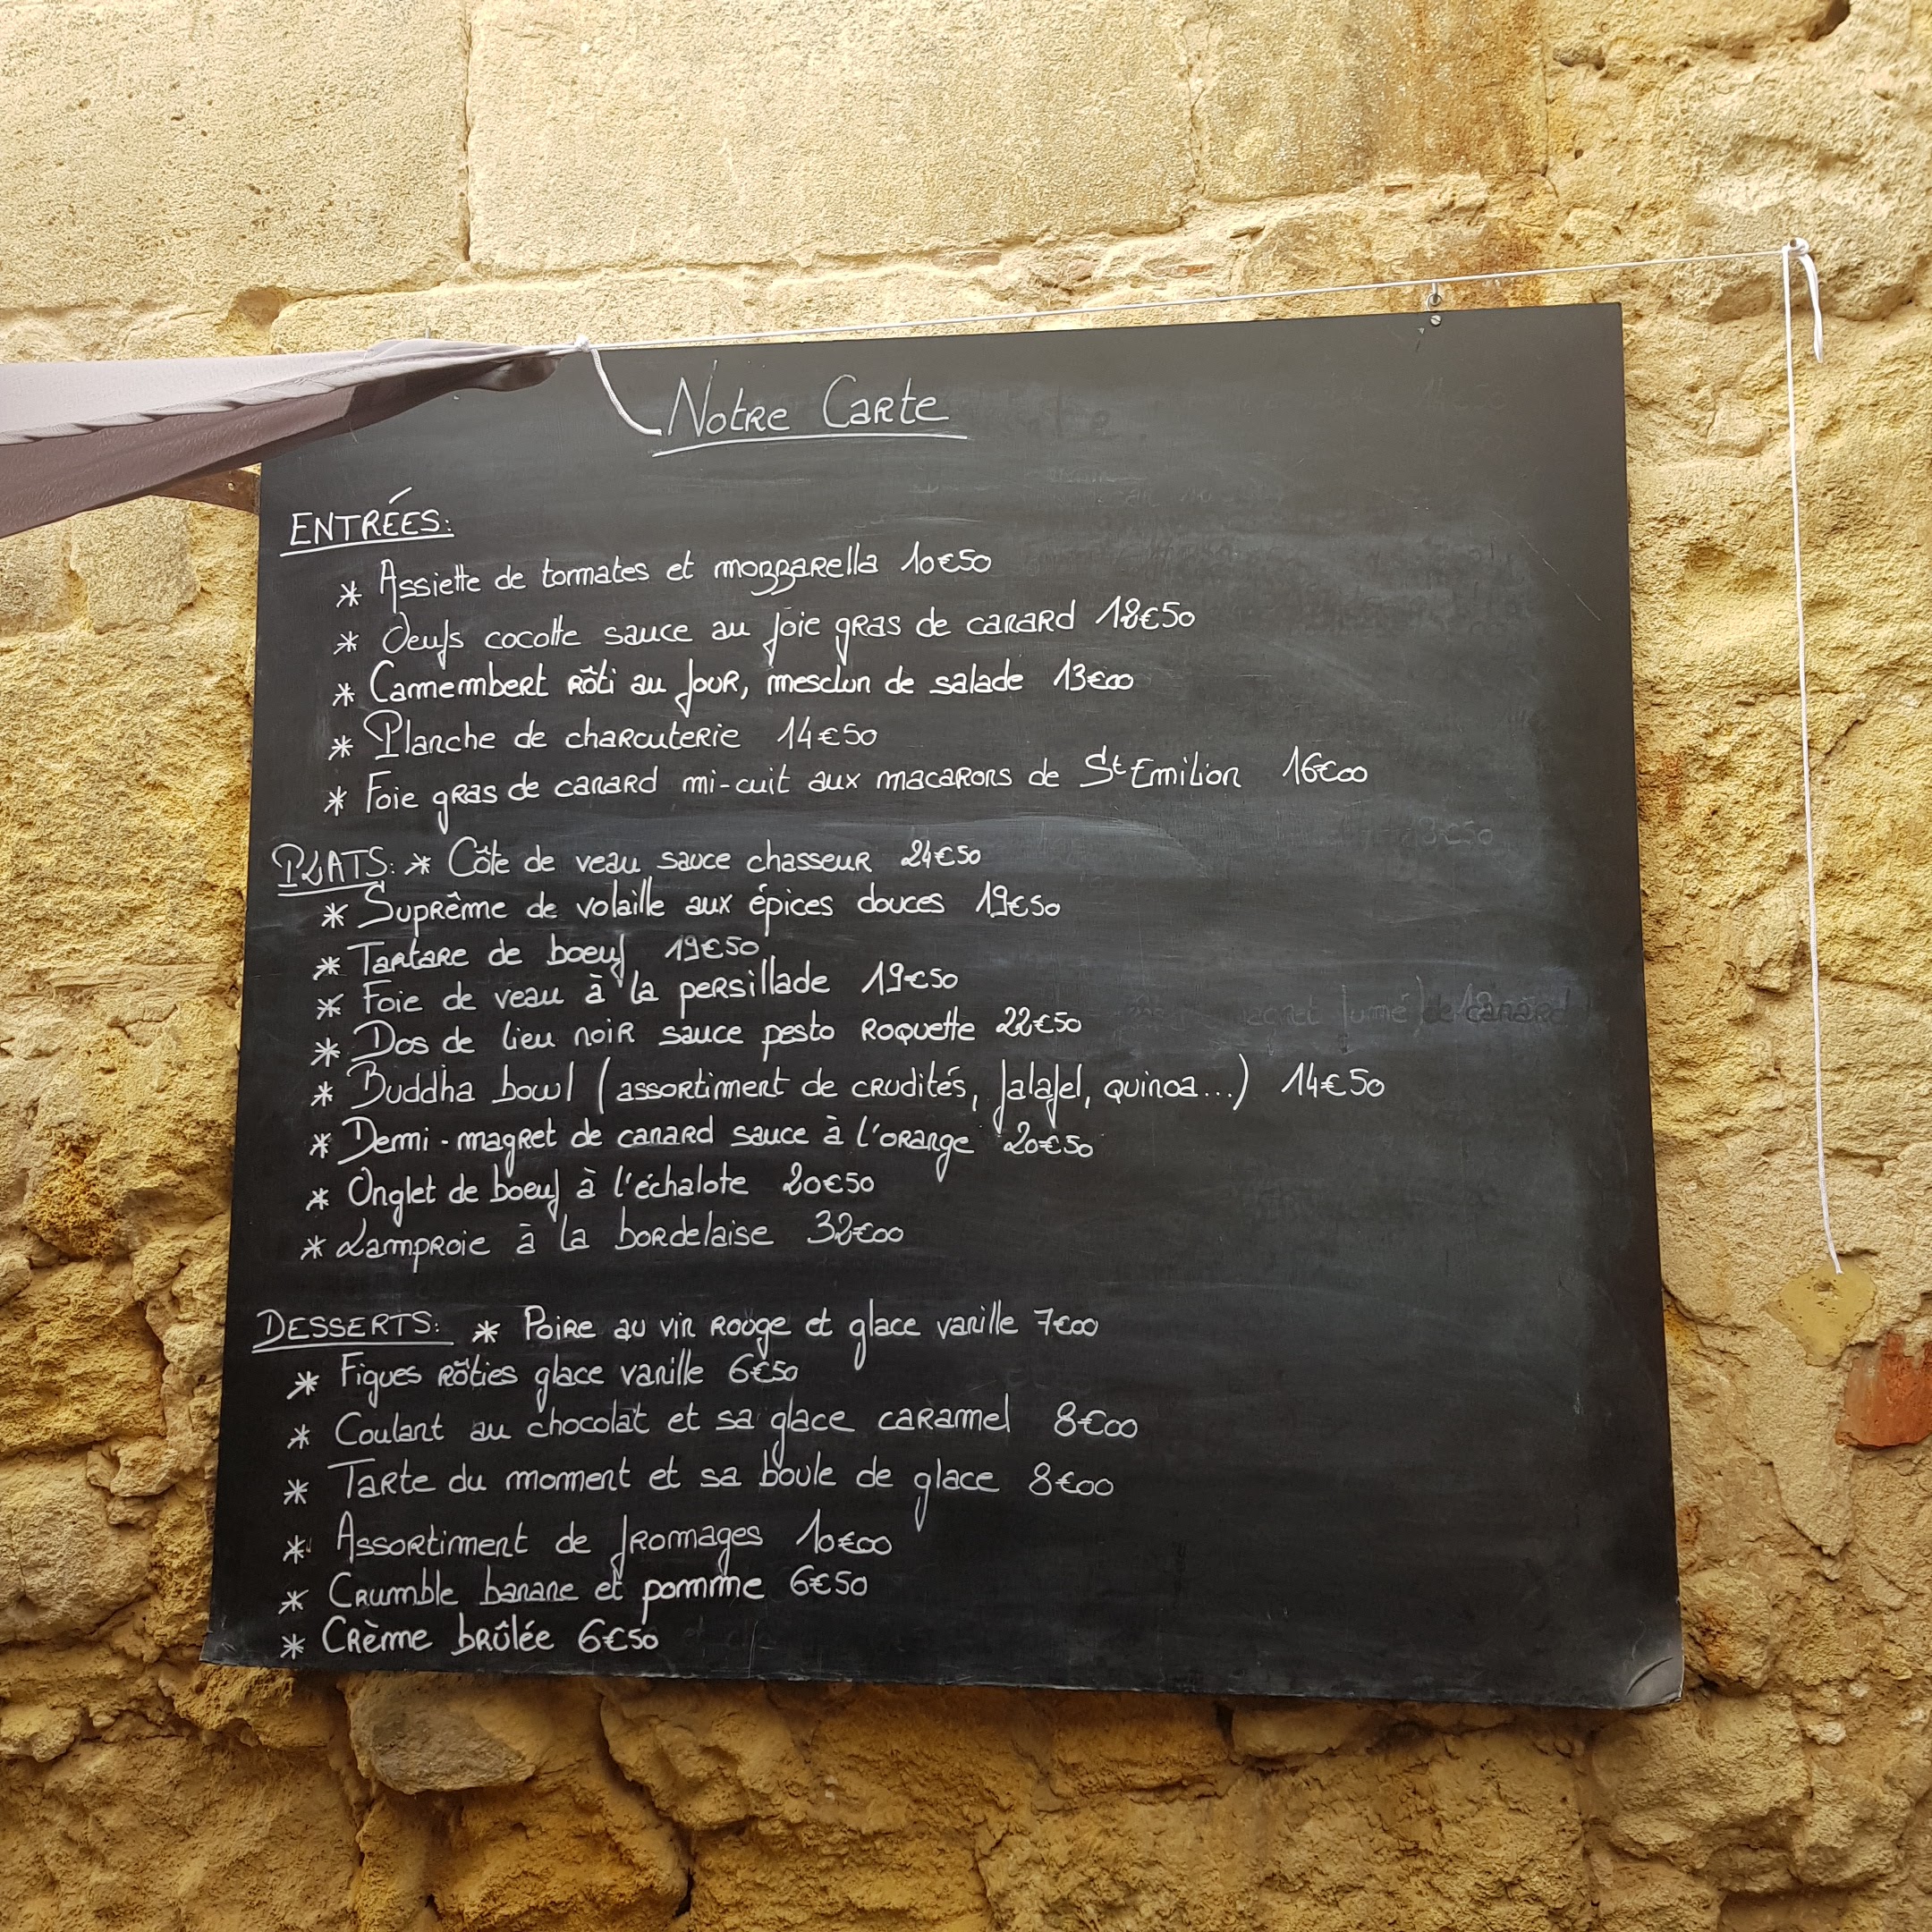 Notre Carte
ENTRÉES:
* Assiette de tomates et mozzarella 10€50
* Oeufs cocotte sauce au foie gras de canard 12€50
* Camembert rôti au four, mesclun de salade 13€00
* Planche de charcuterie 14€50
* Foie gras de canard mi-cuit aux macarons de St Emilion 16€00
PLATS: * Côte de veau sauce chasseur 24€50
* Suprême de volaille aux épices douces 19€50
* Tartare de boeuf 19€50
* Foie de veau à la persillade 19€50
* Dos de lieu noir sauce pesto roquette 22€50
* Buddha bowl (assortiment de crudités, falafel, quinoa...) 14€50
* Demi-magret de canard sauce à l'orange 20€50
* Onglet de boeuf à l'échalote 20€50
* Lamproie à la bordelaise 32€00
DESSERTS: * Poire au vin rouge et glace vanille 7€00
* Figues rôties glace vanille 6€50
* Coulant au chocolat et sa glace caramel 8€00
* Tarte du moment et sa boule de glace 8€00
* Assortiment de fromages 10€00
* Crumble banane et pomme 6€50
* Crème brûlée 6€50